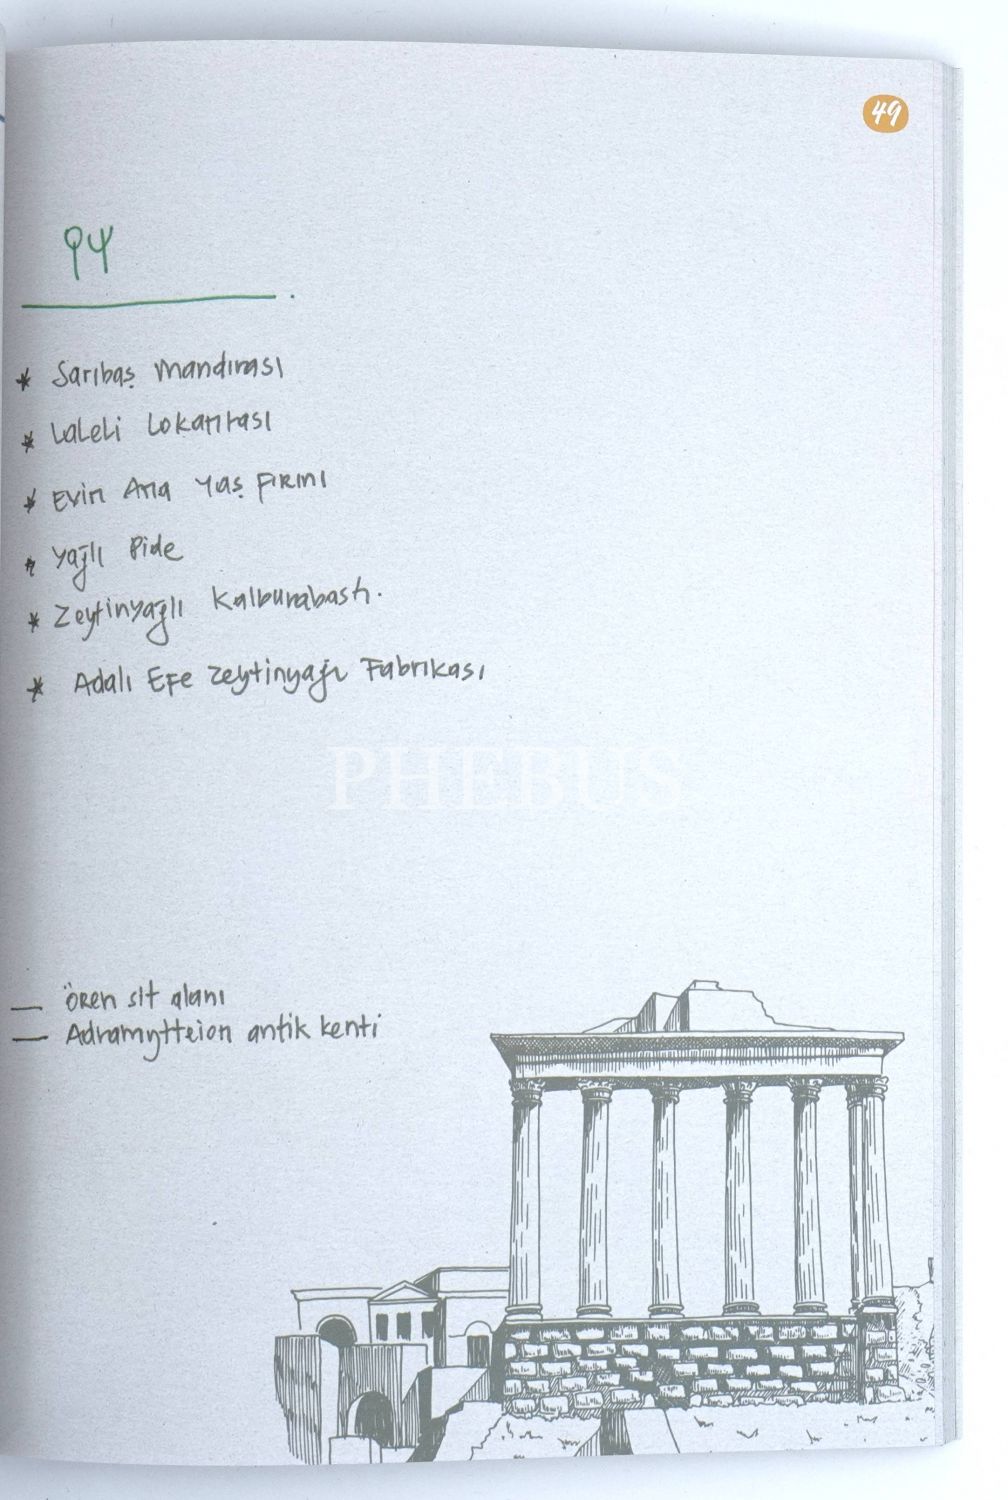 49
* Sarıbaş Mandırası
* Laleli Lokantası
* Evin Ana Yaş Fırını
* Yağlı Pide
* Zeytinyağlı Kalburabastı.
* Adalı Efe Zeytinyağı Fabrikası
PHEBUS
— Ören sit alanı
— Adramytteion antik kenti